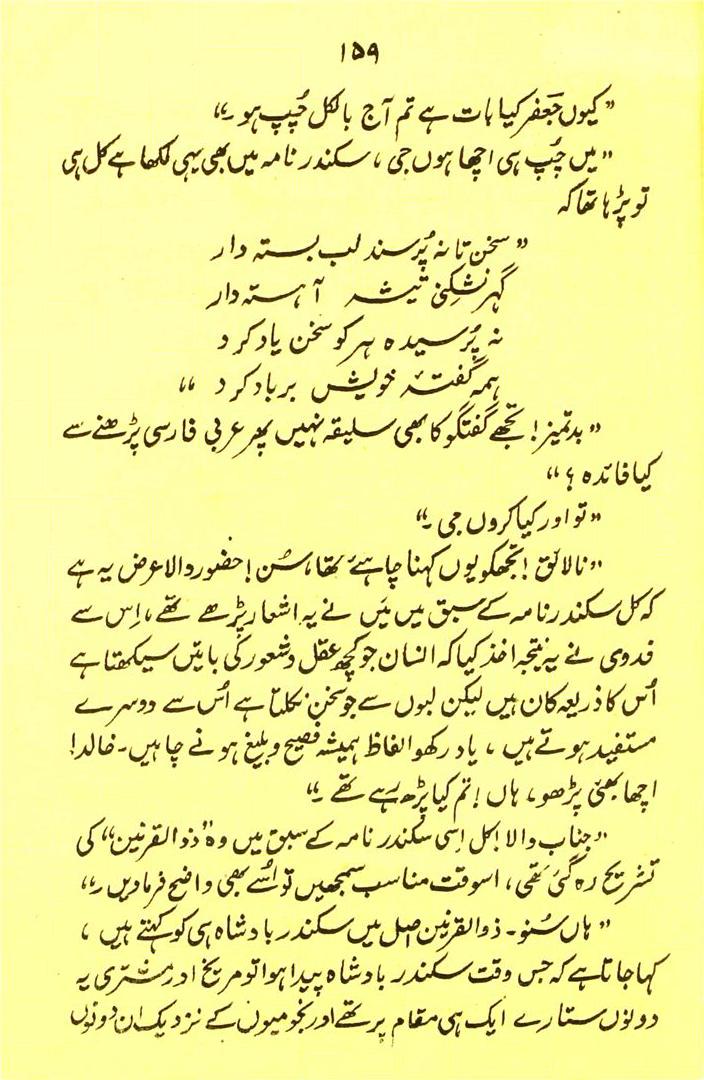 ۱۵۹
”کیوں جعفر کیا بات ہے تم آج بالکل چُپ ہو۔“
”میں چُپ ہی اچھا ہوں جی ، سکندر نامہ میں بھی یہی لکھا ہے کل ہی
تو پڑہا تھا کہ
”سخن تا نہ پُرسند لب بستہ دار
گہر نشکنی تیشہ آہستہ دار
نہ پُرسیدہ ہر کو سخن یاد کرد
ہمہ گفتۂ خویش برباد کرد “
”بدتمیز! تجھے گفتگو کا بھی سلیقہ نہیں پھر عربی فارسی پڑھنے سے
کیا فائدہ ؟“
”تو اور کیا کروں جی ۔“
”نالائق! تجھکو یوں کہنا چاہئے تھا، سُن! حضور والا عرض یہ ہے
کہ کل سکندر نامہ کے سبق میں مَیں نے یہ اشعار پڑھے تھے ، اِس سے
فدوی نے یہ نتیجہ اخذ کیا کہ انسان جو کچھ عقل و شعور کی باتیں سیکھتا ہے
اُس کا ذریعہ کان ہیں لیکن لبوں سے جو سخن نکلتا ہے اُس سے دوسرے
مستفید ہوتے ہیں ، یاد رکھو الفاظ ہمیشہ فصیح و بلیغ ہونے چاہیں۔ خالد!
اچھا بھئی پڑھو، ہاں! تم کیا پڑھ رہے تھے ۔“
”جناب والا! کل اِسی سکندر نامہ کے سبق میں وہ ”ذوالقرنین“ کی
تشریح رہ گئی تھی ، اسوقت مناسب سمجھیں تو اُسے بھی واضح فرمادیں ۔“
”ہاں سُنو۔ ذوالقرنین اصل میں سکندر بادشاہ ہی کو کہتے ہیں ،
کہا جاتا ہے کہ جس وقت سکندر بادشاہ پیدا ہوا تو مریخ اور مشتری یہ
دونوں ستارے ایک ہی مقام پر تھے اور نجومیوں کے نزدیک ان دونوں